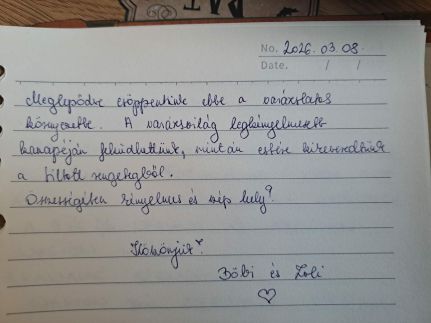 No. 2026.03.08.
Date. / /
Meglepődve csöppentünk ebbe a varázslatos
környezetbe. A varázsvilág legkényelmesebb
kanapéján felüdültünk, miután estére kikeveredtünk
a tiltott rengetegből.
Összességében kényelmes és szép hely!
Köszönjük!
Böbi és Zoli
♡